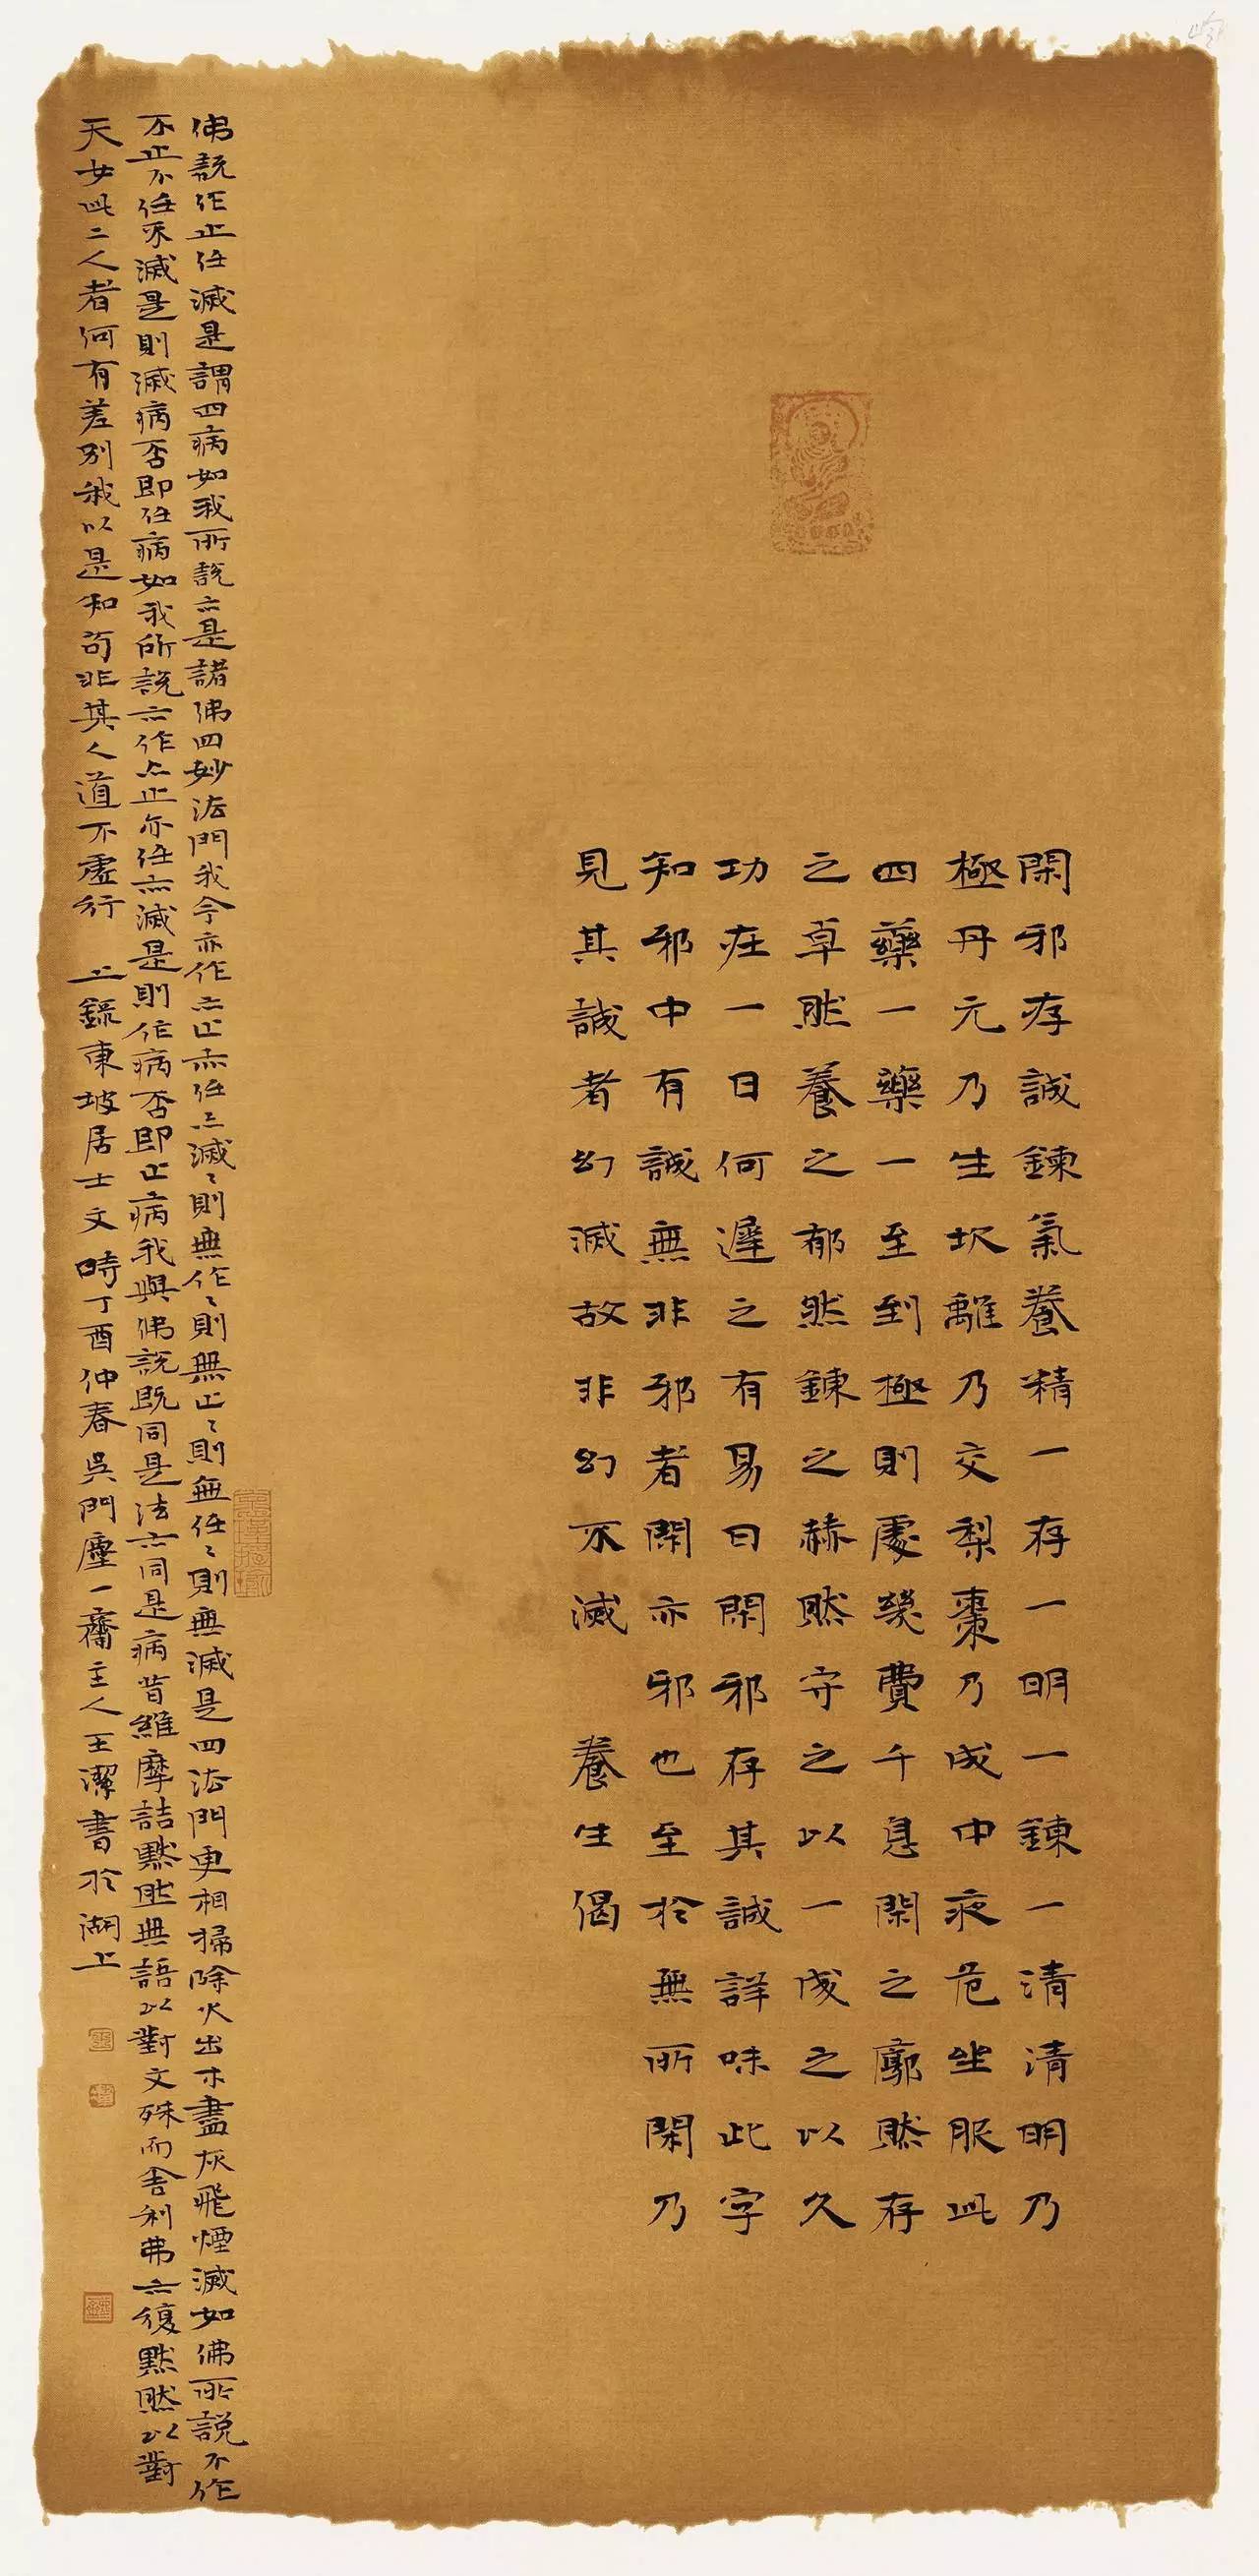 閑邪存誠鍊氣養精一存一明一鍊一清清明乃
極丹元乃生坎離乃交梨棗乃成中夜危坐服此
四藥一藥一至到極則處幾費千息閑之廓然存
之卓然養之郁然鍊之赫然守之以一成之以久
功在一日何遲之有易曰閑邪存其誠詳味此字
知邪中有誠無非邪者閑亦邪也至於無所閑乃
見其誠者幻滅故非幻不滅 養生偈
佛說作止任滅是謂四病如我所說亦是諸佛四妙法門我今亦作亦止亦任亦滅〻則無作〻則無止〻則無任〻則無滅是四法門更相掃除火出木盡灰飛煙滅如佛所說不作
不止不任不滅是則滅病否即任病如我所說亦作亦止亦任亦滅是則作病否即止病我與佛說既同是法亦同是病昔維摩詰默然無語以對文殊而舍利弗亦復默然以對
天女此二人者何有差別我以是知苟非其人道不虛行 上錄東坡居士文時丁酉仲春吳門塵一齋主人王潔書於湖上